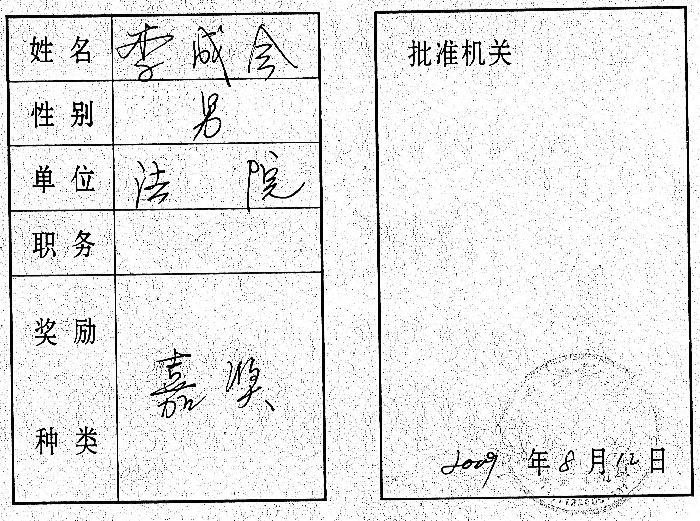 姓名 李成会
性别 男
单位 法院
职务
奖励种类 嘉奖
批准机关
2009年8月12日